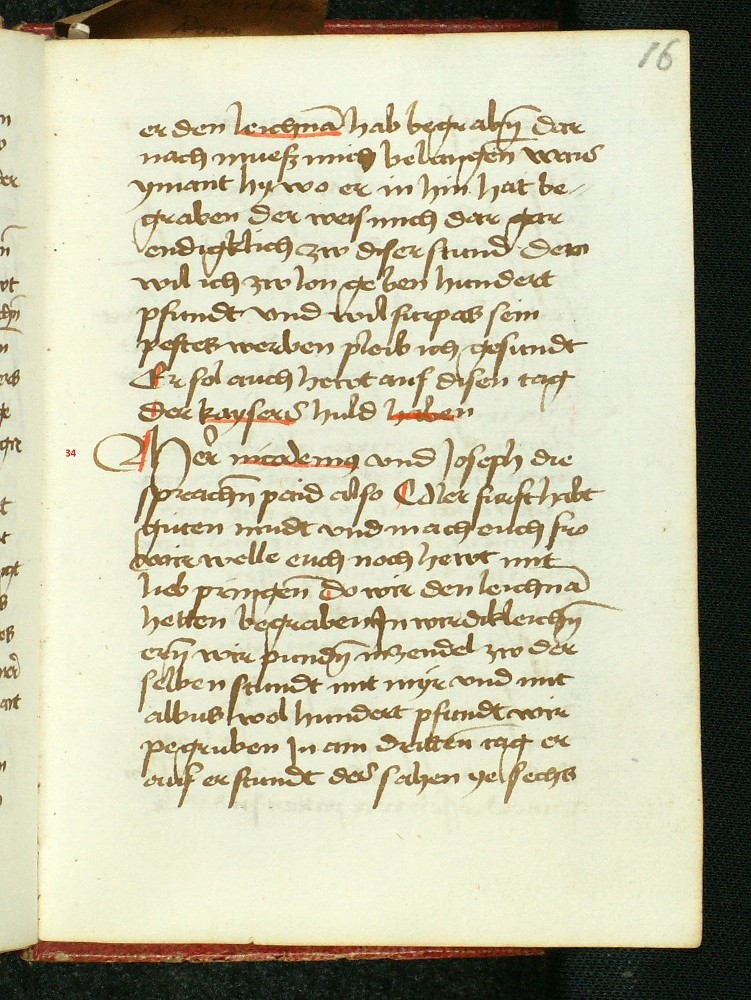 16
er den leichnā hab begrabn̄ dar
nach muesz mich belangen wais
ymant hy wo er in hin hat be-
graben der weis mich dar gar
endigklich zw diser stund dem
wil ich zw lon geben hundert
pfundt vnd wil furpas sein
pestes werben pleib ich gesundt
Er sol auch hewt auf disen tag
der kaysers huld haben
34
Her nicodemus vnd Joseph die
sprachn̄ paid also Edler furst habt
guten mudt vnd mach euch fro
wir welle euch noch hewt mit
lieb pringen̄ do wir den leichnā
hetten begraben In wirdikleichn̄
ern̄ wir pundn̄ in zendel zw der
selben stundt mit myr vnd mit
albus wol hundert pfundt wir
pegruben In am dritten̄ tag er
auf erstundt des sahen ye sechs